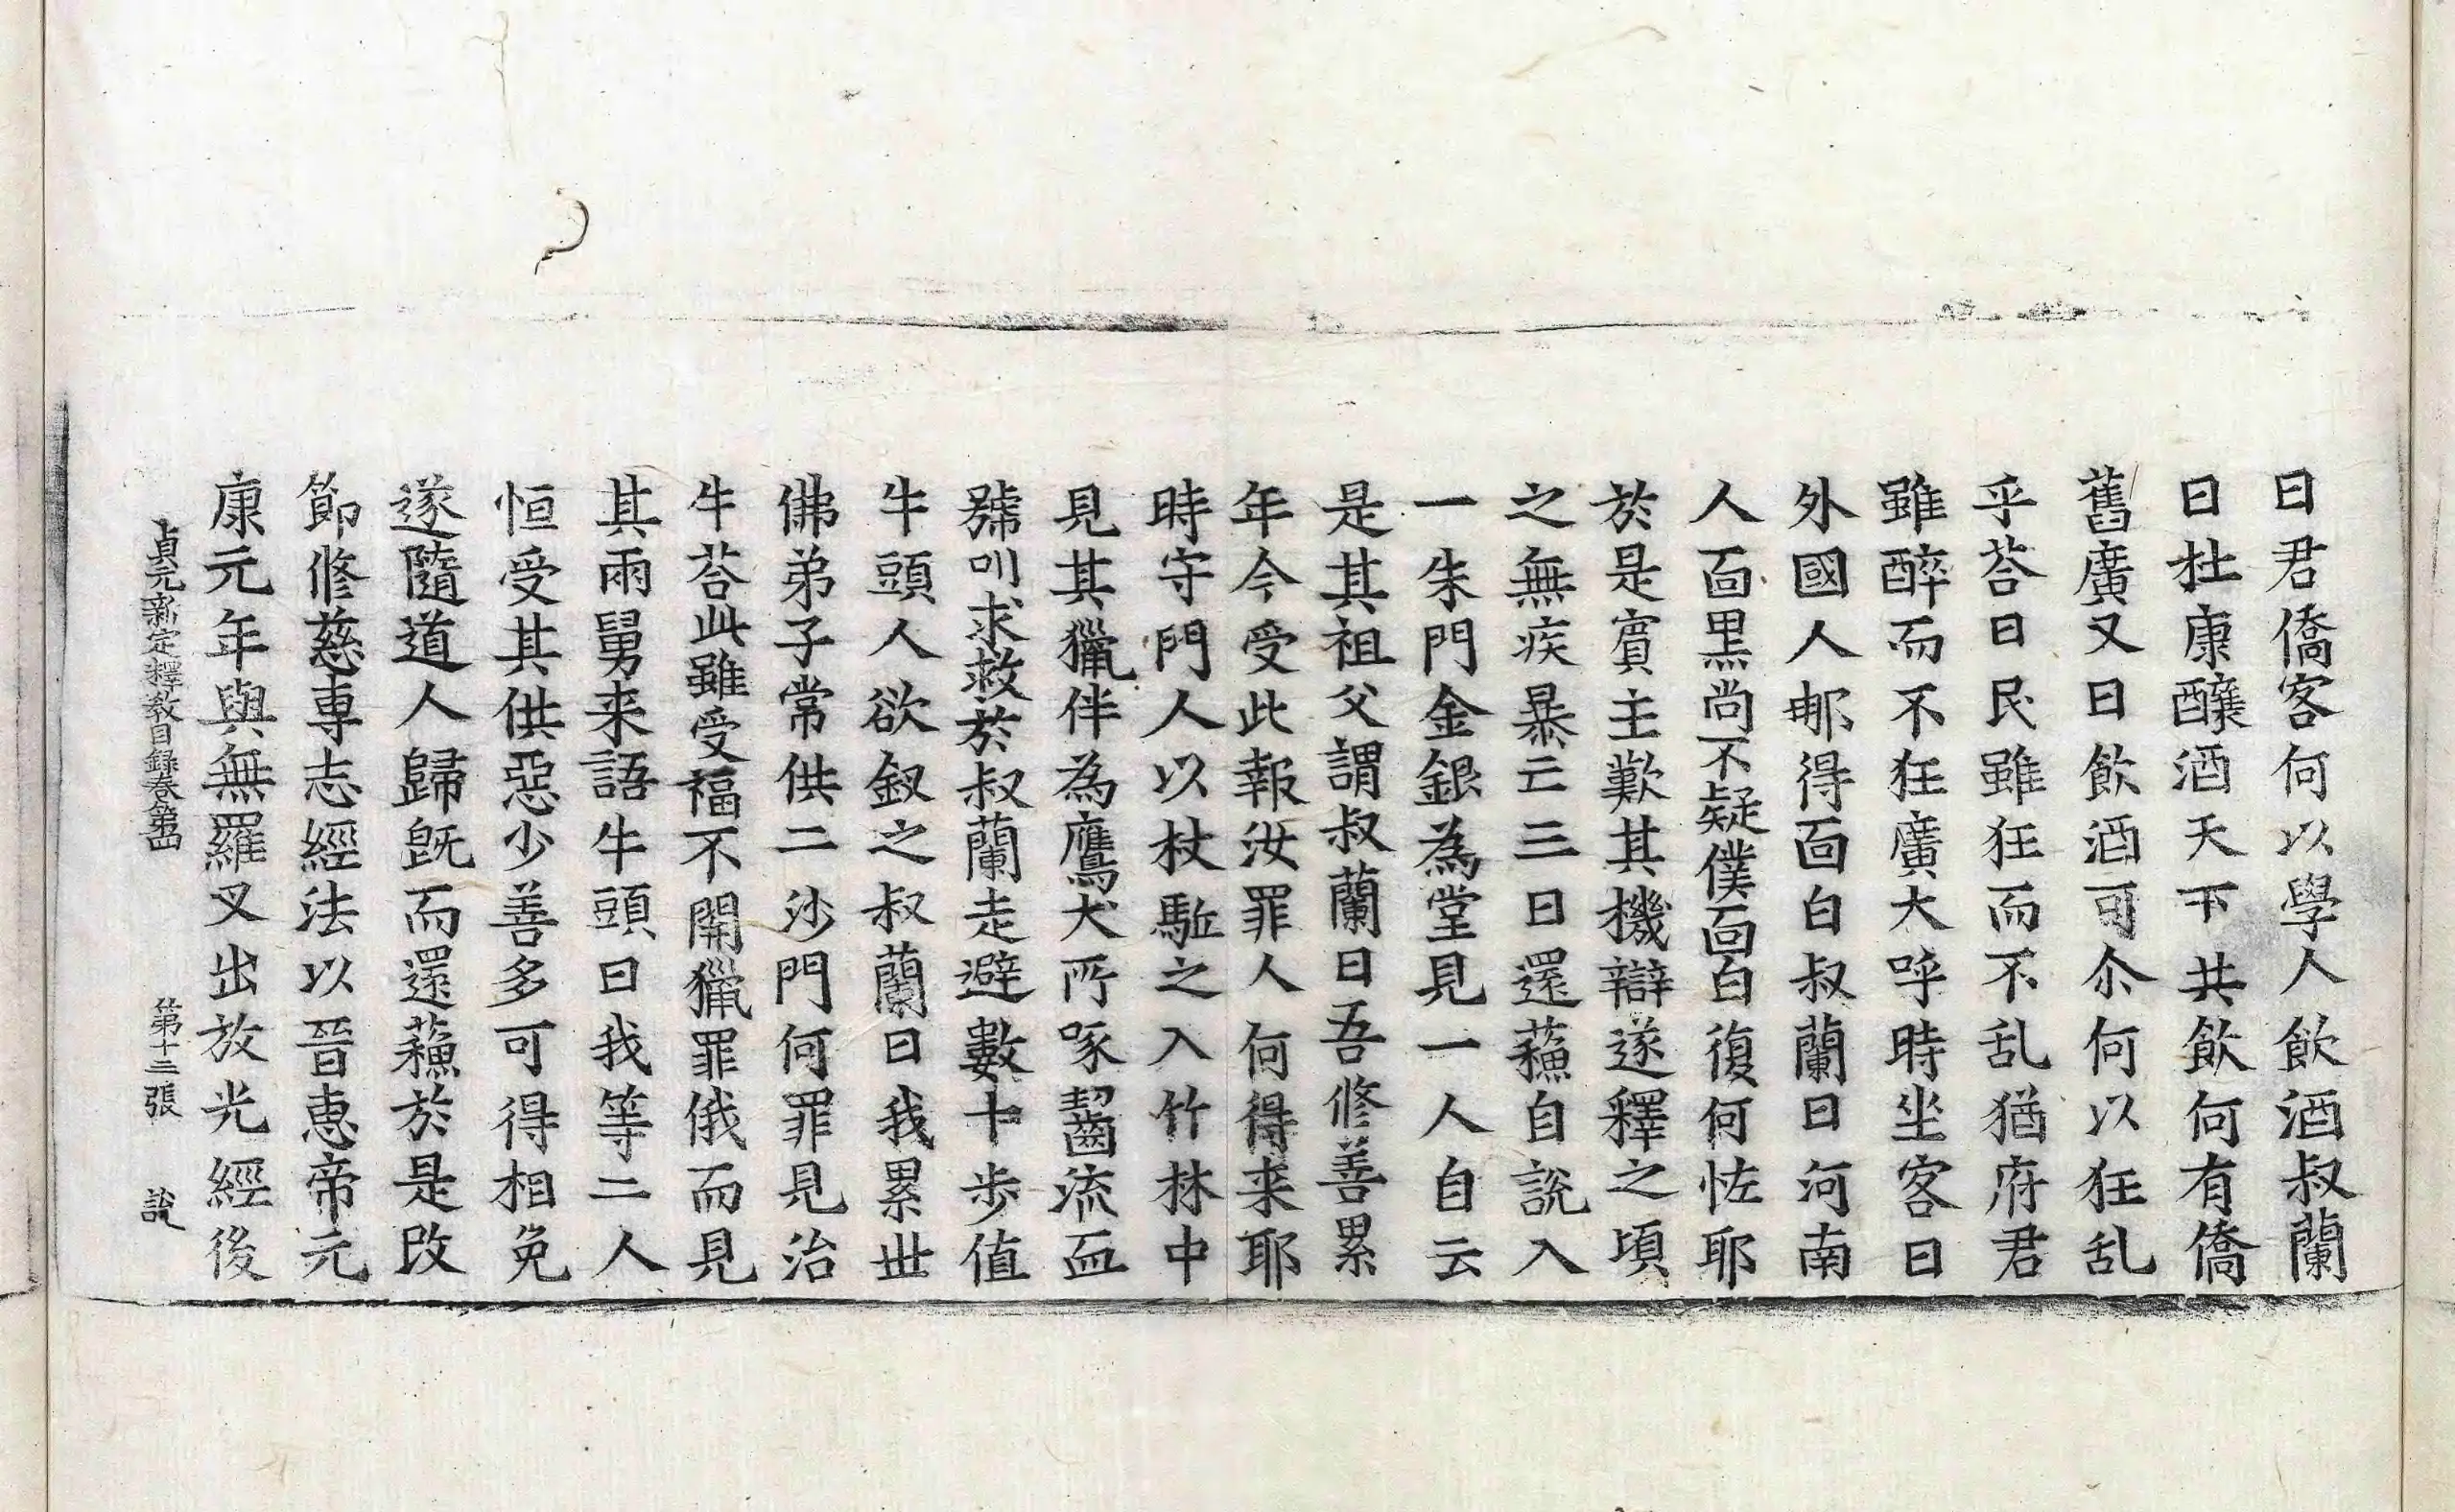 曰君僑客何以學人飲酒叔蘭
曰杜康釀酒天下共飲何有僑
舊廣又曰飲酒可尒何以狂乱
乎荅曰民雖狂而不乱猶府君
雖醉而不狂廣大呼時坐客曰
外國人那得面白叔蘭曰河南
人面黑尚不疑僕面白復何恠耶
於是賓主歎其機辯遂釋之頃
之無疾暴亡三日還蘓自說入
一朱門金銀為堂見一人自云
是其祖父謂叔蘭曰吾修善累
年今受此報汝罪人何得来耶
時守門人以杖駈之入竹林中
見其獵伴為鷹犬所啄齧流血
號叫求救於叔蘭走避數十步值
牛頭人欲釵之叔蘭曰我累世
佛弟子常供二沙門何罪見治
牛荅此雖受福不開獵罪俄而見
其兩舅来語牛頭曰我等二人
恒受其供惡少善多可得相免
遂隨道人歸旣而還蘓於是改
節修慈專志經法以晉惠帝元
康元年與無羅叉出放光經後
貞元新定釋教目錄卷第四　第十三張　說